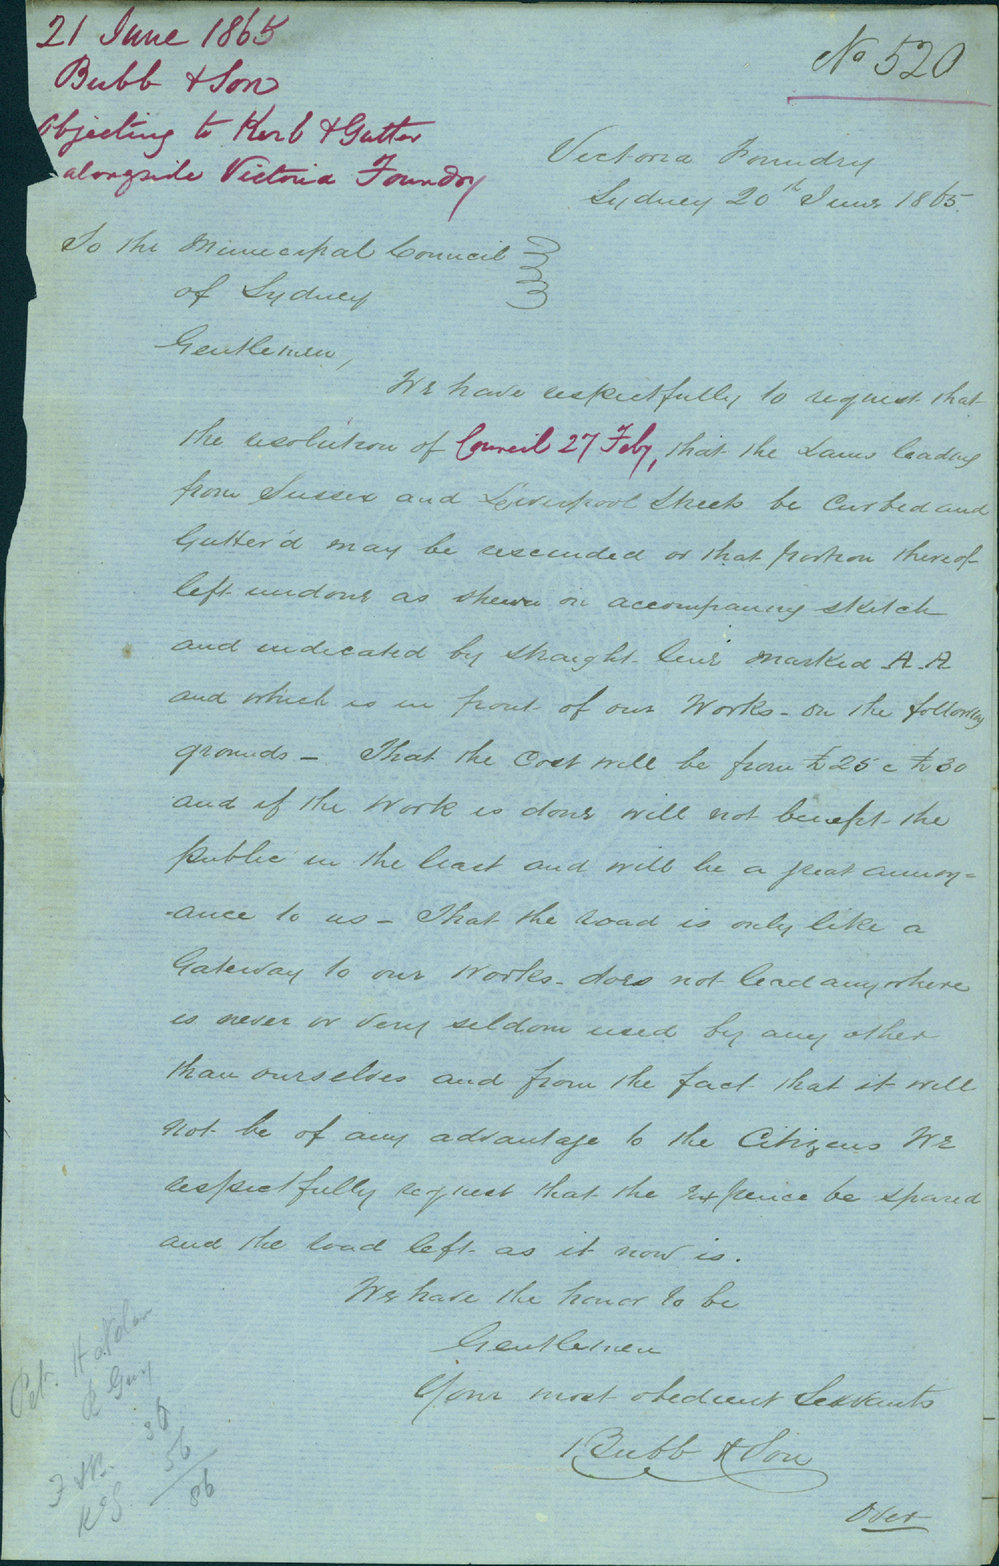 21 June 1865
Bubb & Son
Objecting to Kerb & Gutter
alongside Victoria Foundry
No 520
Victoria Foundry
Sydney 20th June 1865.
To the Municipal Council
of Sydney
Gentlemen,
We have respectfully to request that
the resolution of Council 27 Feby, that the Lane leading
from Sussex and Liverpool Streets be Curbed and
Gutter'd may be rescinded or that portion thereof
left undone as shewn on accompanying sketch
and indicated by straight line marked A.A
and which is in front of our Works - on the following
grounds - That the Cost will be from £25 a £30
and if the Work is done will not benefit the
public in the least and will be a great annoy=
-ance to us - That the road is only like a
Gateway to our Works - does not lead anywhere
is never or very seldom used by any other
than ourselves and from the fact that it will
not be of any advantage to the Citizens We
respectfully request that the Expence be spared
and the road left as it now is.
We have the honor to be
Gentlemen
Your most obedient Servants
Bubb & Son
Over
36
56
86